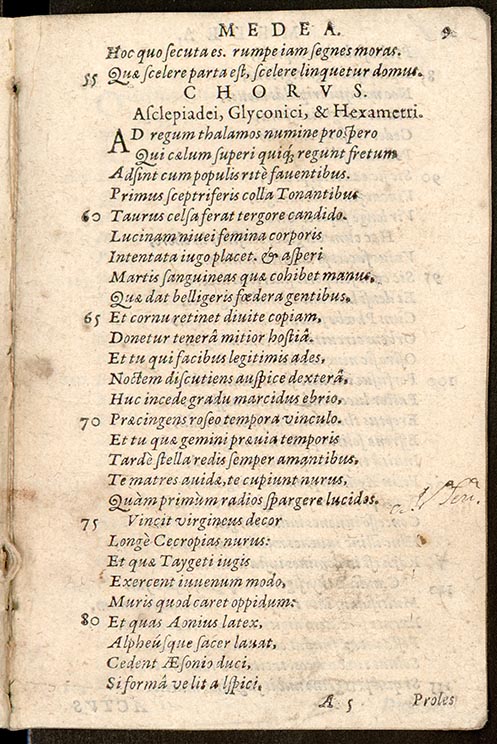 MEDEA. 9
Hoc quo secuta es. rumpe iam segnes moras.
55 Quæ scelere parta est, scelere linquetur domus.
CHORVS.
Asclepiadei, Glyconici, & Hexametri.
AD regum thalamos numine prospero
Qui cælum superi quiq́; regunt fretum
Adsint cum populis ritè faventibus.
Primus sceptriferis colla Tonantibus
60 Taurus celsa ferat tergore candido.
Lucinam nivei femina corporis
Intentata iugo placet. & asperi
Martis sanguineas quæ cohibet manus,
Quæ dat belligeris fœdera gentibus.
65 Et cornu retinet divite copiam,
Donetur tenerâ mitior hostiâ.
Et tu qui facibus legitimis ades,
Noctem discutiens auspice dexterâ,
Huc incede gradu marcidus ebrio,
70 Præcingens roseo tempora vinculo.
Et tu quæ gemini prævia temporis
Tardè stella redis semper amantibus,
Te matres avidæ, te cupiunt nurus,
Quàm primùm radios spargere lucidos.
75 Vincit virgineus decor
Longè Cecropias nurus:
Et quæ Taygeti iugis
Exercent iuvenum modo,
Muris quod caret oppidum:
80 Et quas Aonius latex,
Alpheúsque sacer lavat,
Cedent Æsonio duci,
Si formâ velit aspici,
A 5 Proles